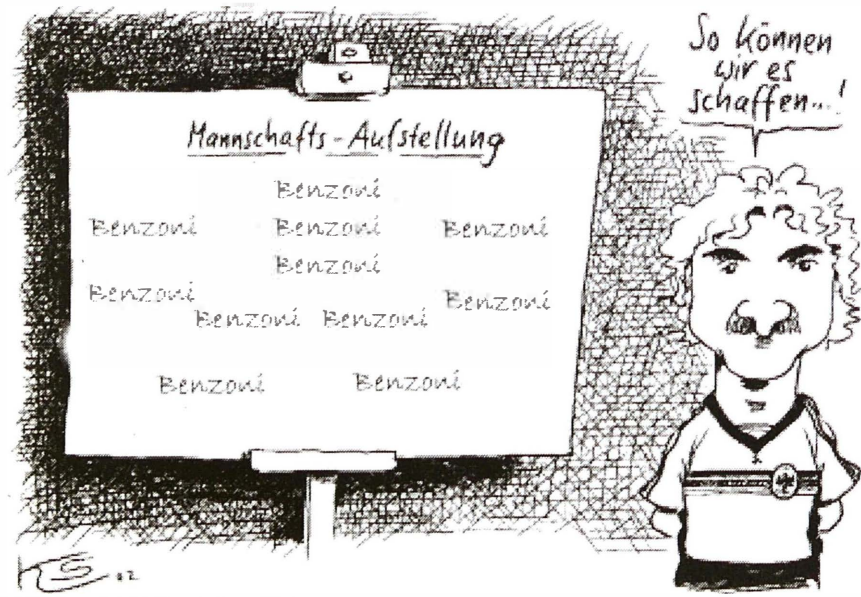 So können
wir es
schaffen...!
Mannschafts-Aufstellung
Benzoni
Benzoni Benzoni Benzoni
Benzoni
Benzoni Benzoni
Benzoni Benzoni
Benzoni Benzoni
02